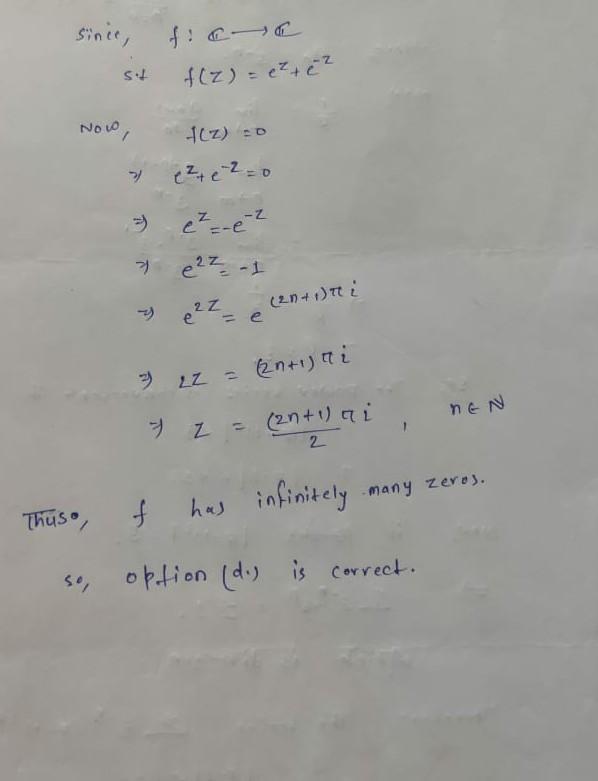 Since, f : ℂ → ℂ
s.t f(z) = e^z + e^-z
Now, f(z) = 0
⇒ e^z + e^-z = 0
⇒ e^z = -e^-z
⇒ e^2z = -1
⇒ e^2z = e^(2n+1)πi
⇒ 2z = (2n+1)πi
⇒ z = (2n+1)πi / 2 , n ∈ N
Thus, f has infinitely many zeros.
so, option (d.) is correct.